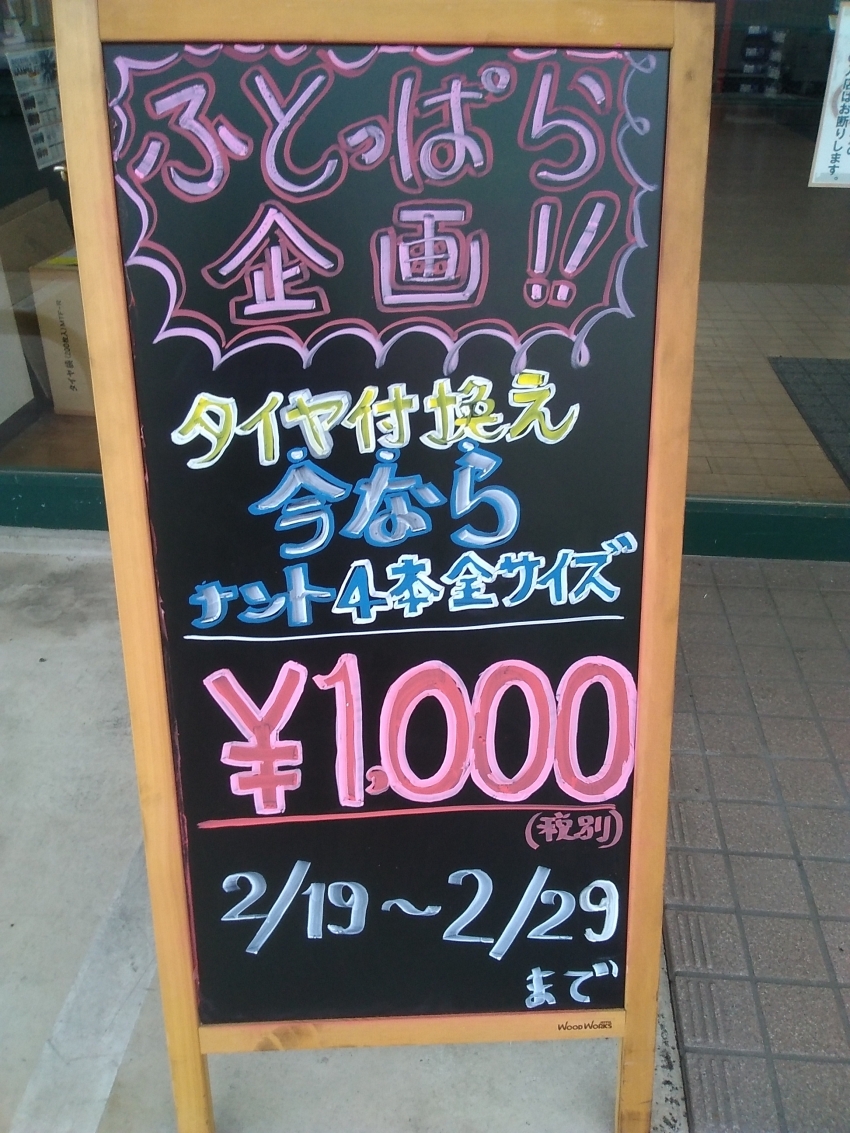 ふとっぱら
企画!!
タイヤ付換え
今なら
ナント4本全サイズ
¥1,000
(税別)
2/19〜2/29
まで
WOOD WORKS
店はお断りします。